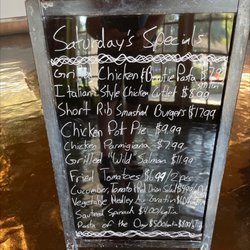 Saturday's Specials
Grilled Chicken & Pasta $7.99
Italian Style Chicken Cutlet $8.99
Short Rib Smashed Burgers $17.99
Chicken Pot Pie $9.99
Chicken Parmigiana $7.99
Grilled "Wild" Salmon $11.99
Fried Tomatoes $6.99/2pcs
Cucumber, Tomato Salad
Vegetable Medley
Sauteed Spinach $4.00
Pasta of the Day $5.00